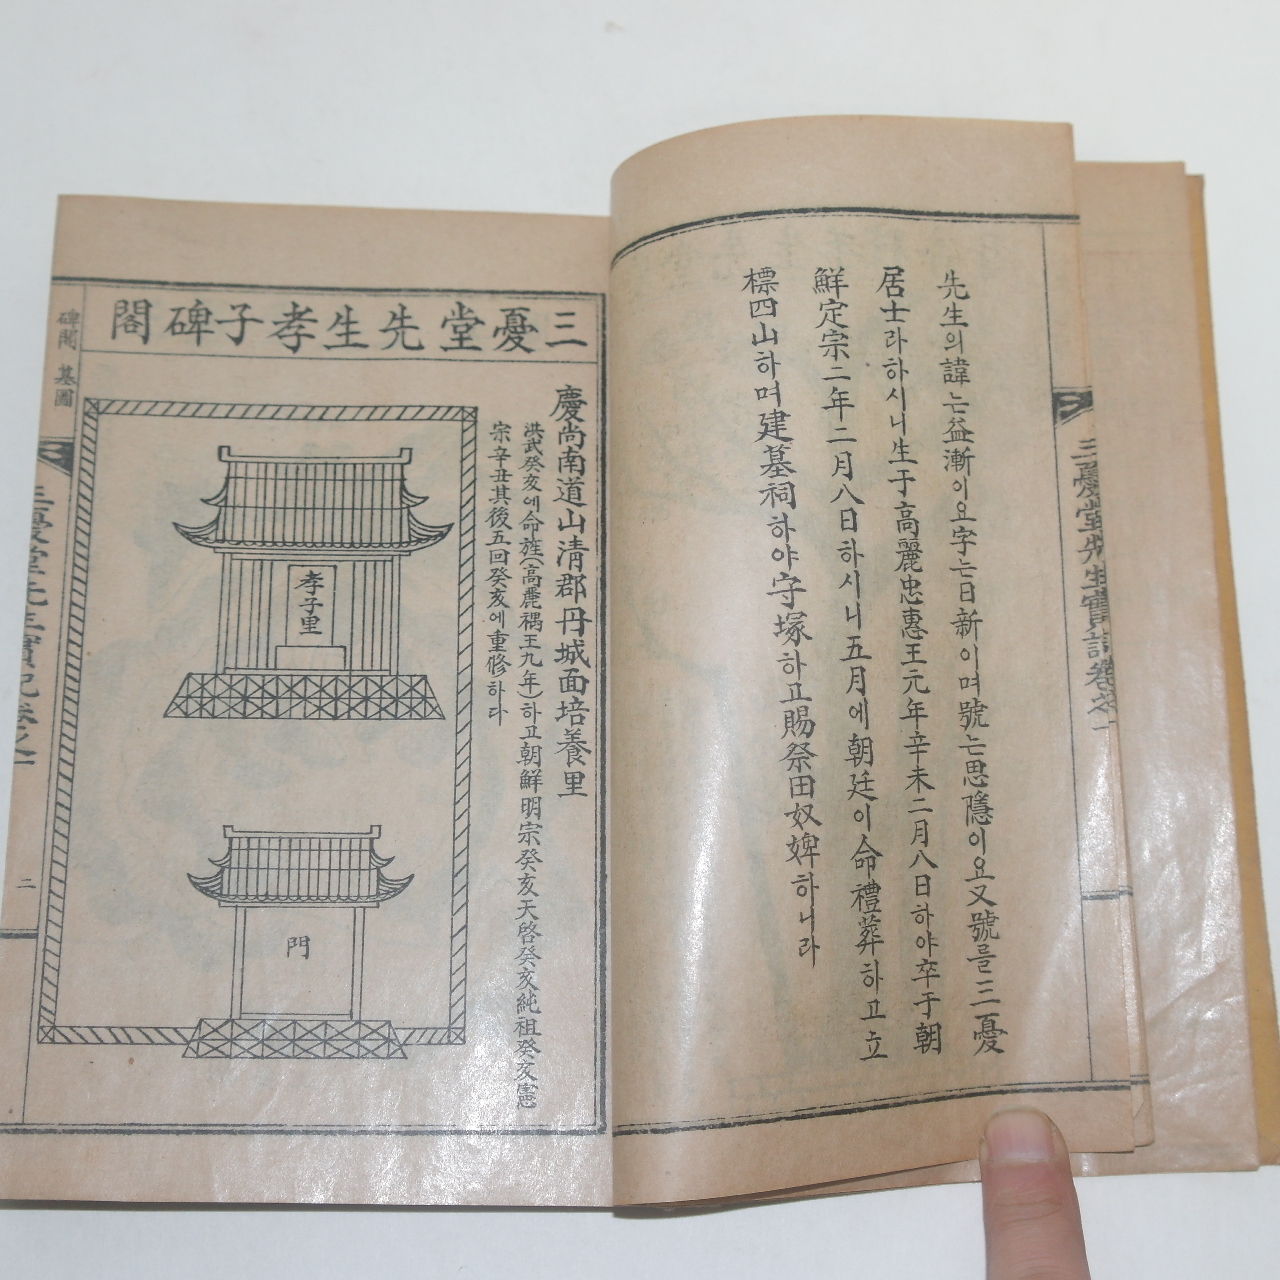 先生의諱는益漸이요字는日新이며號는思隱이요又號를三憂
居士라하시니生于高麗忠惠王元年辛未二月八日하야卒于朝
鮮定宗二年二月八日하시니五月에朝廷이命禮葬하고立
標四山하며建墓祠하야守塚하고賜祭田奴婢하니라
三憂堂先生實記卷之一
三憂堂先生孝子碑閣
慶尙南道山淸郡丹城面培養里
洪武癸亥에命旌(高麗禑王九年)하고朝鮮明宗癸亥天啓癸亥純祖癸亥憲
宗辛丑其後五回癸亥에重修하다
孝子里
門
碑閣 墓圖
三憂堂先生實記卷之一
二